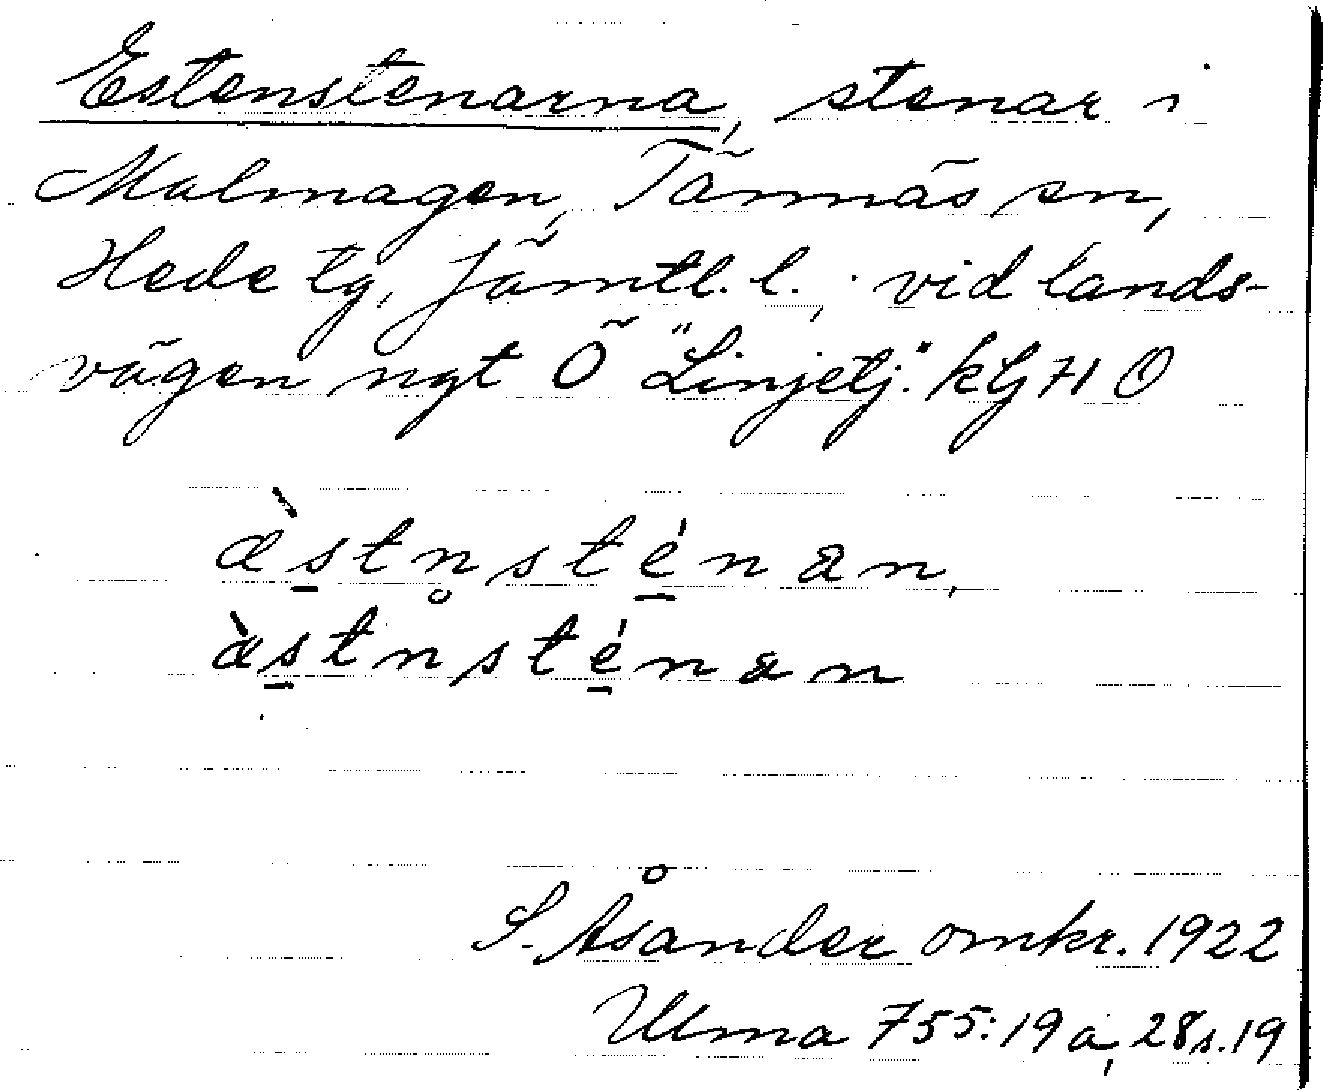 Estenstenarna, stenar i
Malmagen, Tännäs sn,
Hede tg, Jämtl. l., vid lands-
vägen ngt Ö "Linjetj." kG 71 O
æ̀s̠tn̥sté̠nan,
æ̀s̠tnsté̠nan
S. Åsander omkr. 1922
Ulma 755:19 a, 28 s. 19